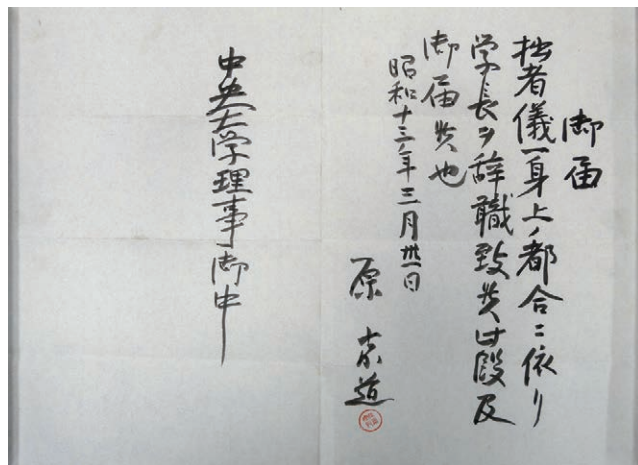 御届
拙者儀一身上ノ都合ニ依リ
学長ヲ辞職致候此段及
御届候也
昭和十三年三月卅一日
原 嘉道
中央大学理事御中